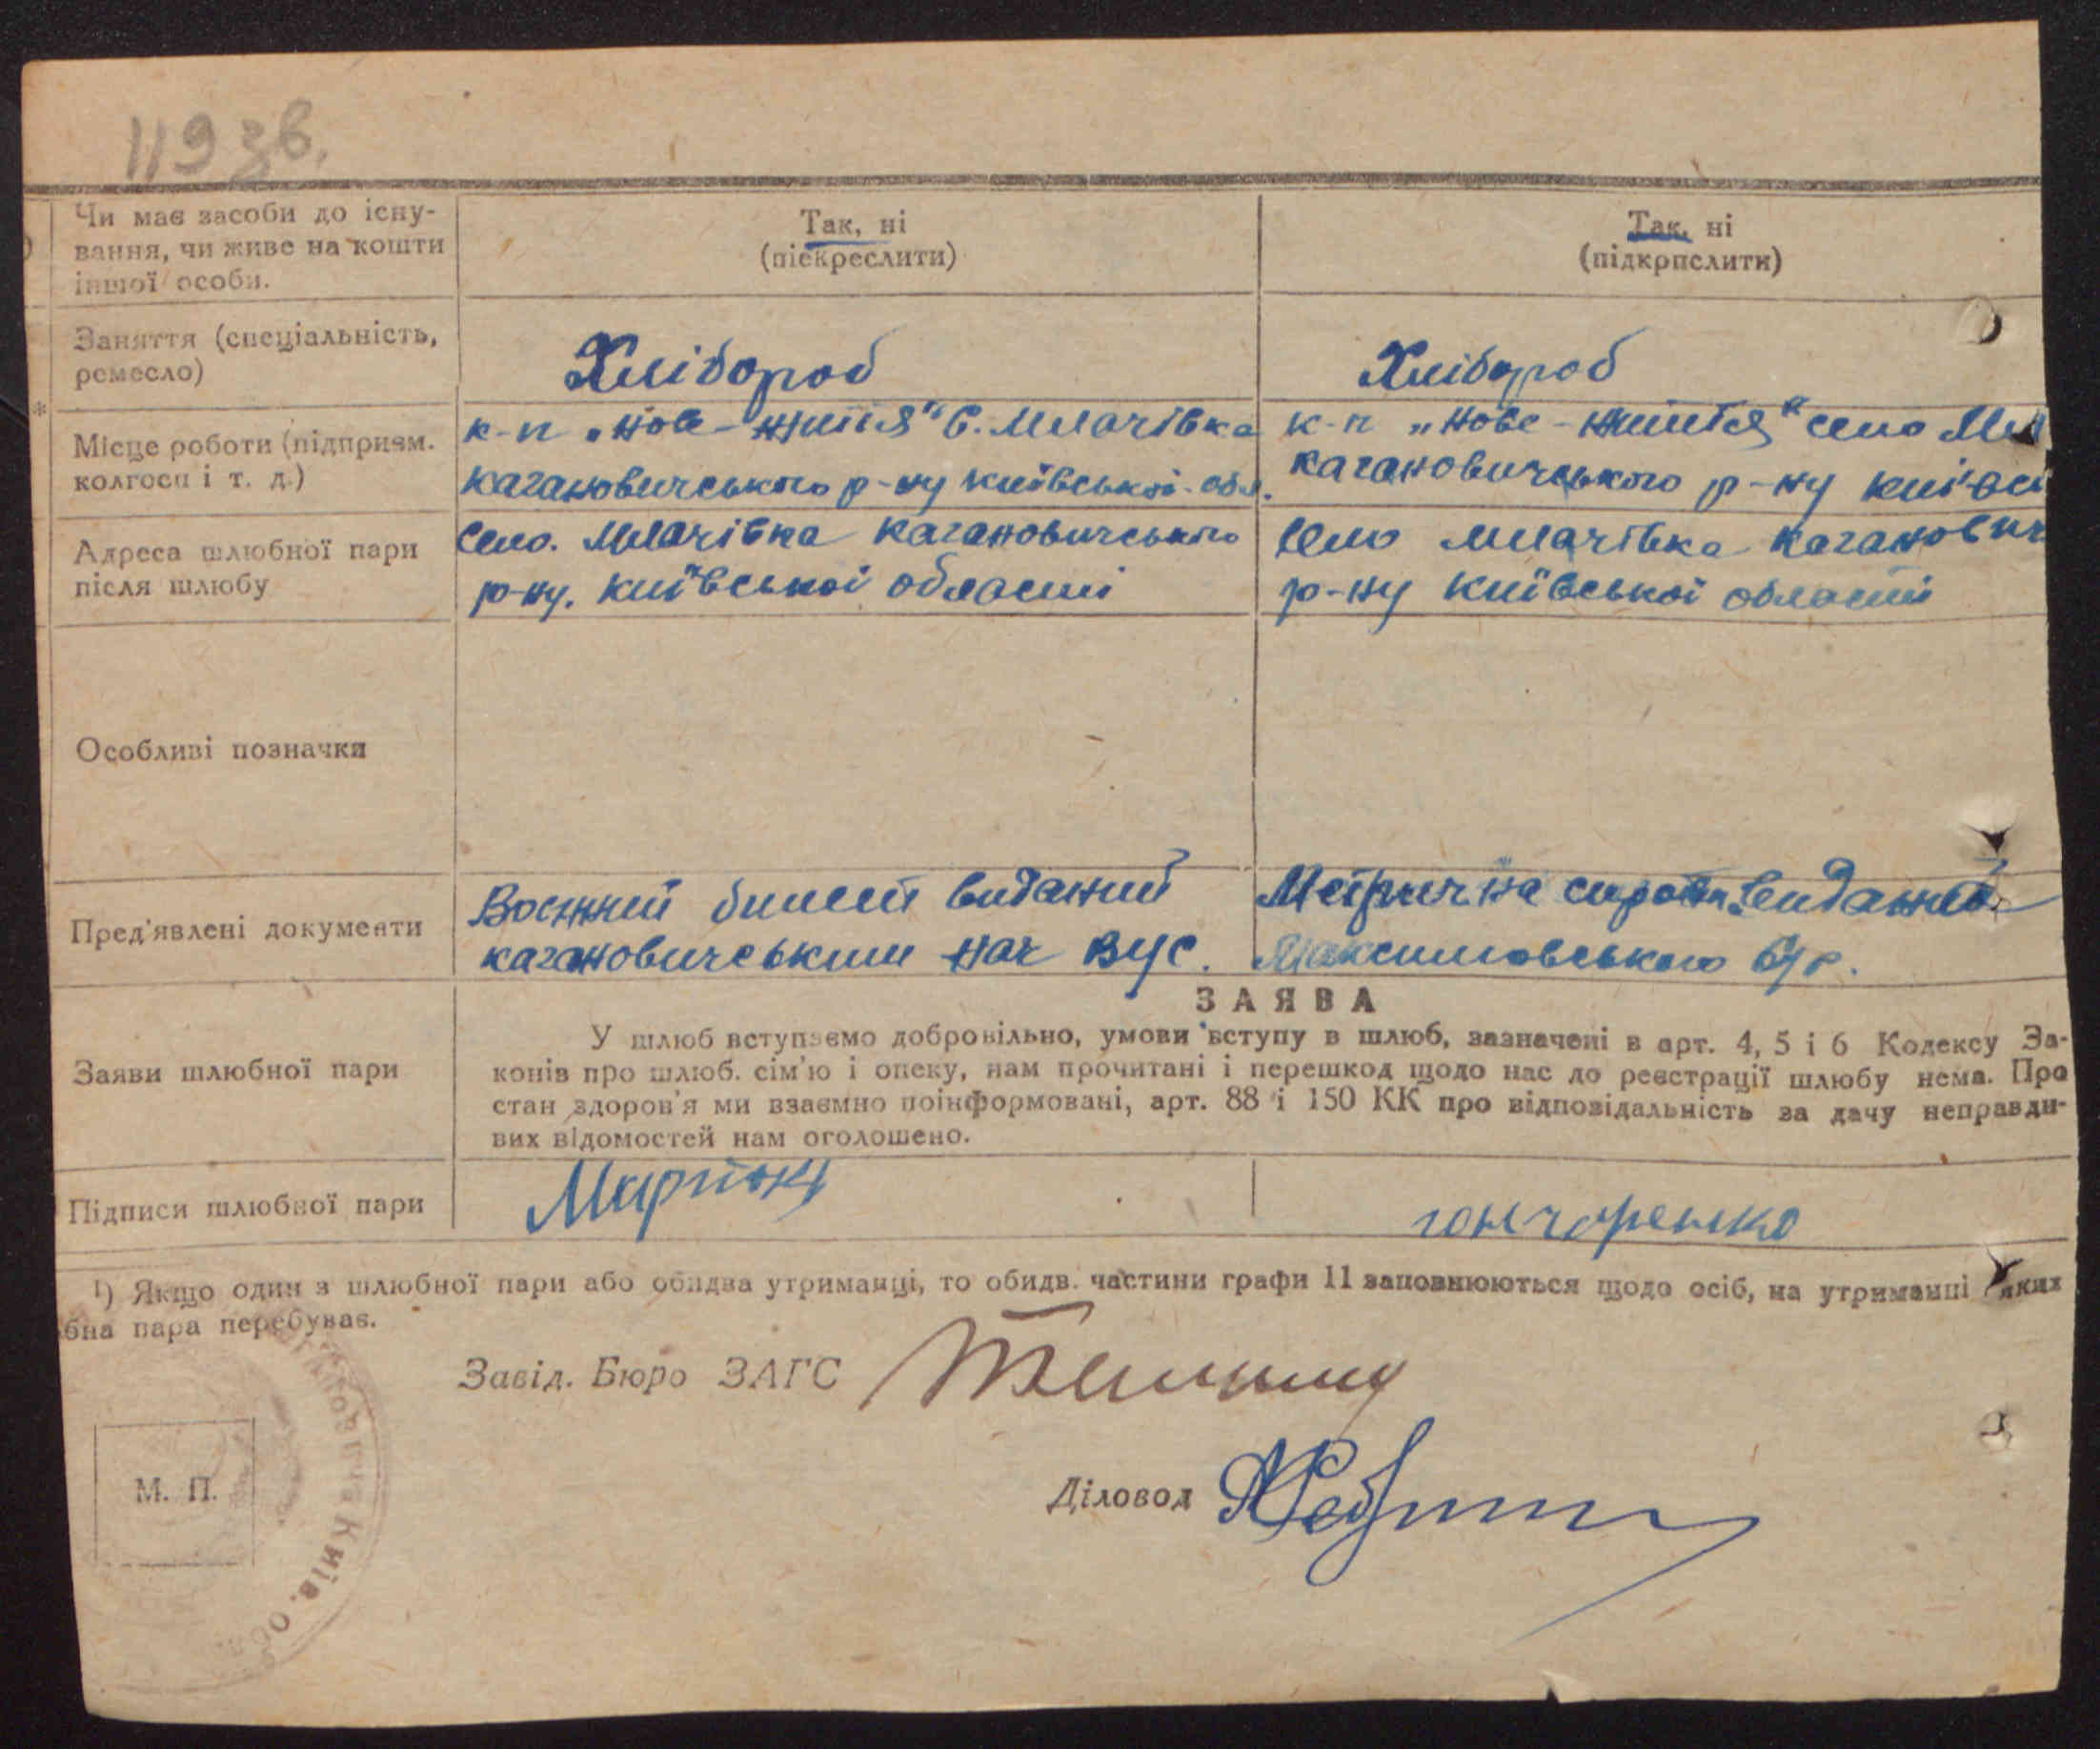 119 зв.
Чи має засоби до існу-
вання, чи живе на кошти
іншої особи.
Так, ні
(піекреслити)
Так, ні
(підкрпслити)
Заняття (спеціальність,
ремесло)
Хлібороб
Хлібороб
Місце роботи (підприєм.
колгосп і т. д.)
к-п „Нове-життя" С. Мларівка
кагановичського р-ну київської обл.
к-п „Нове-життя" село
кагановичського р-ну
Адреса шлюбної пари
після шлюбу
село. Мларівка кагановичського
р-ну. київської області
село Мларівка каганович
р-ну київської області
Особливі позначки
Пред'явлені документи
Воєнний билет виданий
кагановичським нач ВУС.
Метрична
Максимовського
Заяви шлюбної пари
ЗАЯВА
У шлюб вступаємо добровільно, умови вступу в шлюб, зазначені в арт. 4, 5 і 6 Кодексу За-
конів про шлюб. сім'ю і опеку, нам прочитані і перешкод щодо нас до реєстрації шлюбу нема. Про
стан здоров'я ми взаємно поінформовані, арт. 88 і 150 КК про відповідальність за дачу неправди-
вих відомостей нам оголошено.
Підписи шлюбної пари
гончоренко
¹) Якщо один з шлюбної пари або обидва утриманці, то обидв. частини графи 11 заповнюються щодо осіб, на утриманні яких
бна пара перебуває.
Завід. Бюро ЗАГС
Діловод
М. П.
Київ.